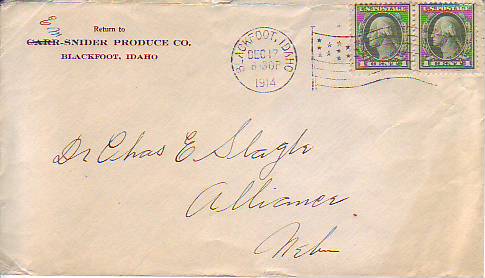 Return to
CARR-SNIDER PRODUCE CO.
BLACKFOOT, IDAHO
BLACKFOOT, IDAHO
DEC 17
1914
U.S. POSTAGE U.S. POSTAGE
Dr Chas E Slagle
Alliance
Neb